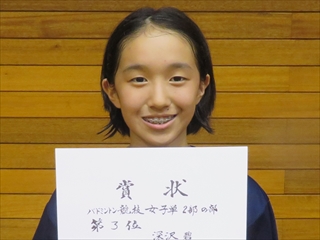 賞状
バドミントン競技 女子単 2部の部
第3位
深沢